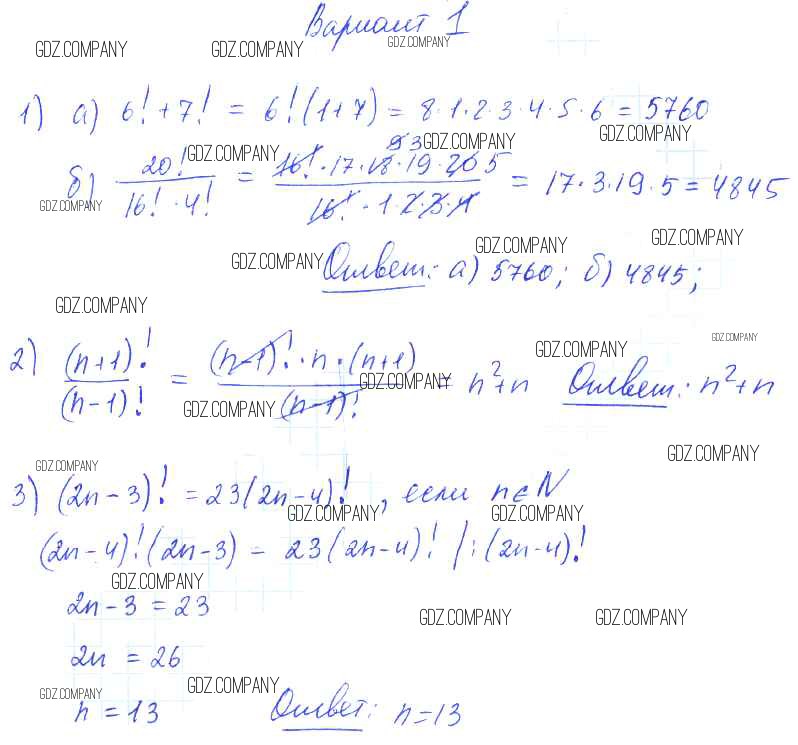 Вариант 1
GDZ.COMPANY GDZ.COMPANY GDZ.COMPANY
1) а) 6! + 7! = 6! (1+7) = 8·1·2·3·4·5·6 = 5760
GDZ.COMPANY GDZ.COMPANY GDZ.COMPANY
б) 20! / 16! · 4! = 16! · 17 · 18 · 19 · 20 / 16! · 1 · 2 · 3 · 4 = 17·3·19·5 = 4845
9 3 5
GDZ.COMPANY
GDZ.COMPANY GDZ.COMPANY GDZ.COMPANY
Ответ: а) 5760; б) 4845;
GDZ.COMPANY
GDZ.COMPANY GDZ.COMPANY
2) (n+1)! / (n-1)! = (n-1)! · n · (n+1) / (n-1)! = n²+n Ответ: n²+n
GDZ.COMPANY GDZ.COMPANY
GDZ.COMPANY GDZ.COMPANY
3) (2n-3)! = 23(2n-4)!, если n∈N
GDZ.COMPANY GDZ.COMPANY
(2n-4)! (2n-3) = 23(2n-4)! /:(2n-4)!
GDZ.COMPANY
2n-3 = 23
GDZ.COMPANY GDZ.COMPANY
2n = 26
GDZ.COMPANY GDZ.COMPANY
n = 13 Ответ: n=13